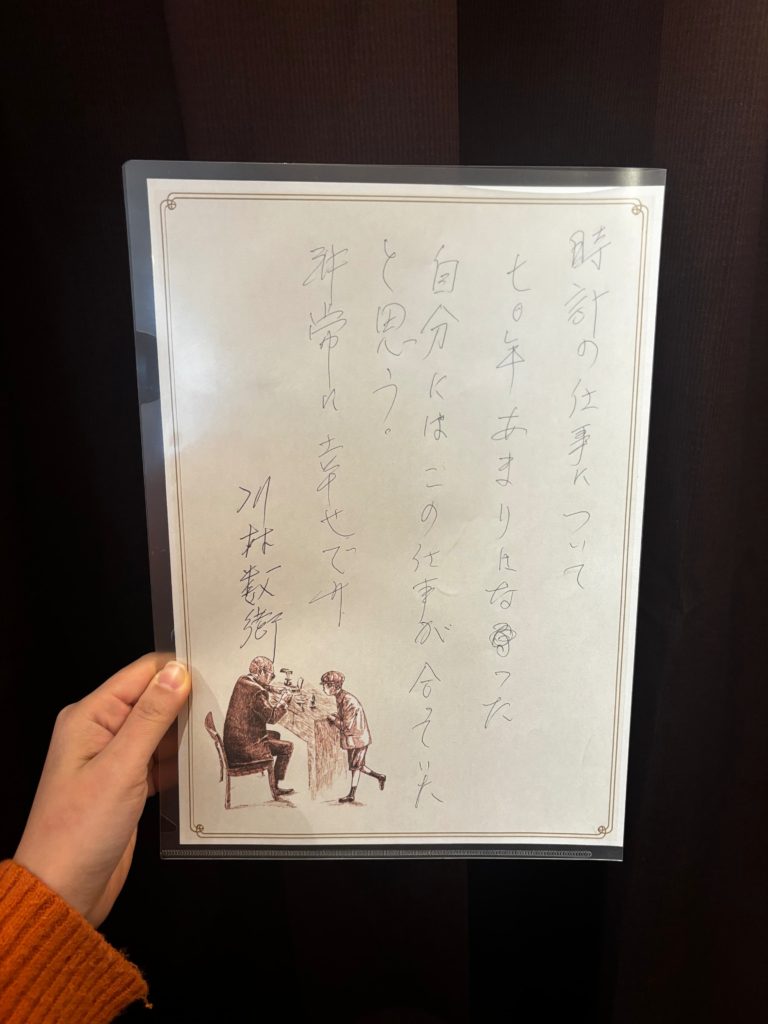 時計の仕事について
七〇年あまりになった
自分にはこの仕事が合そいた
と思う。
非常に幸せです
川林数衛